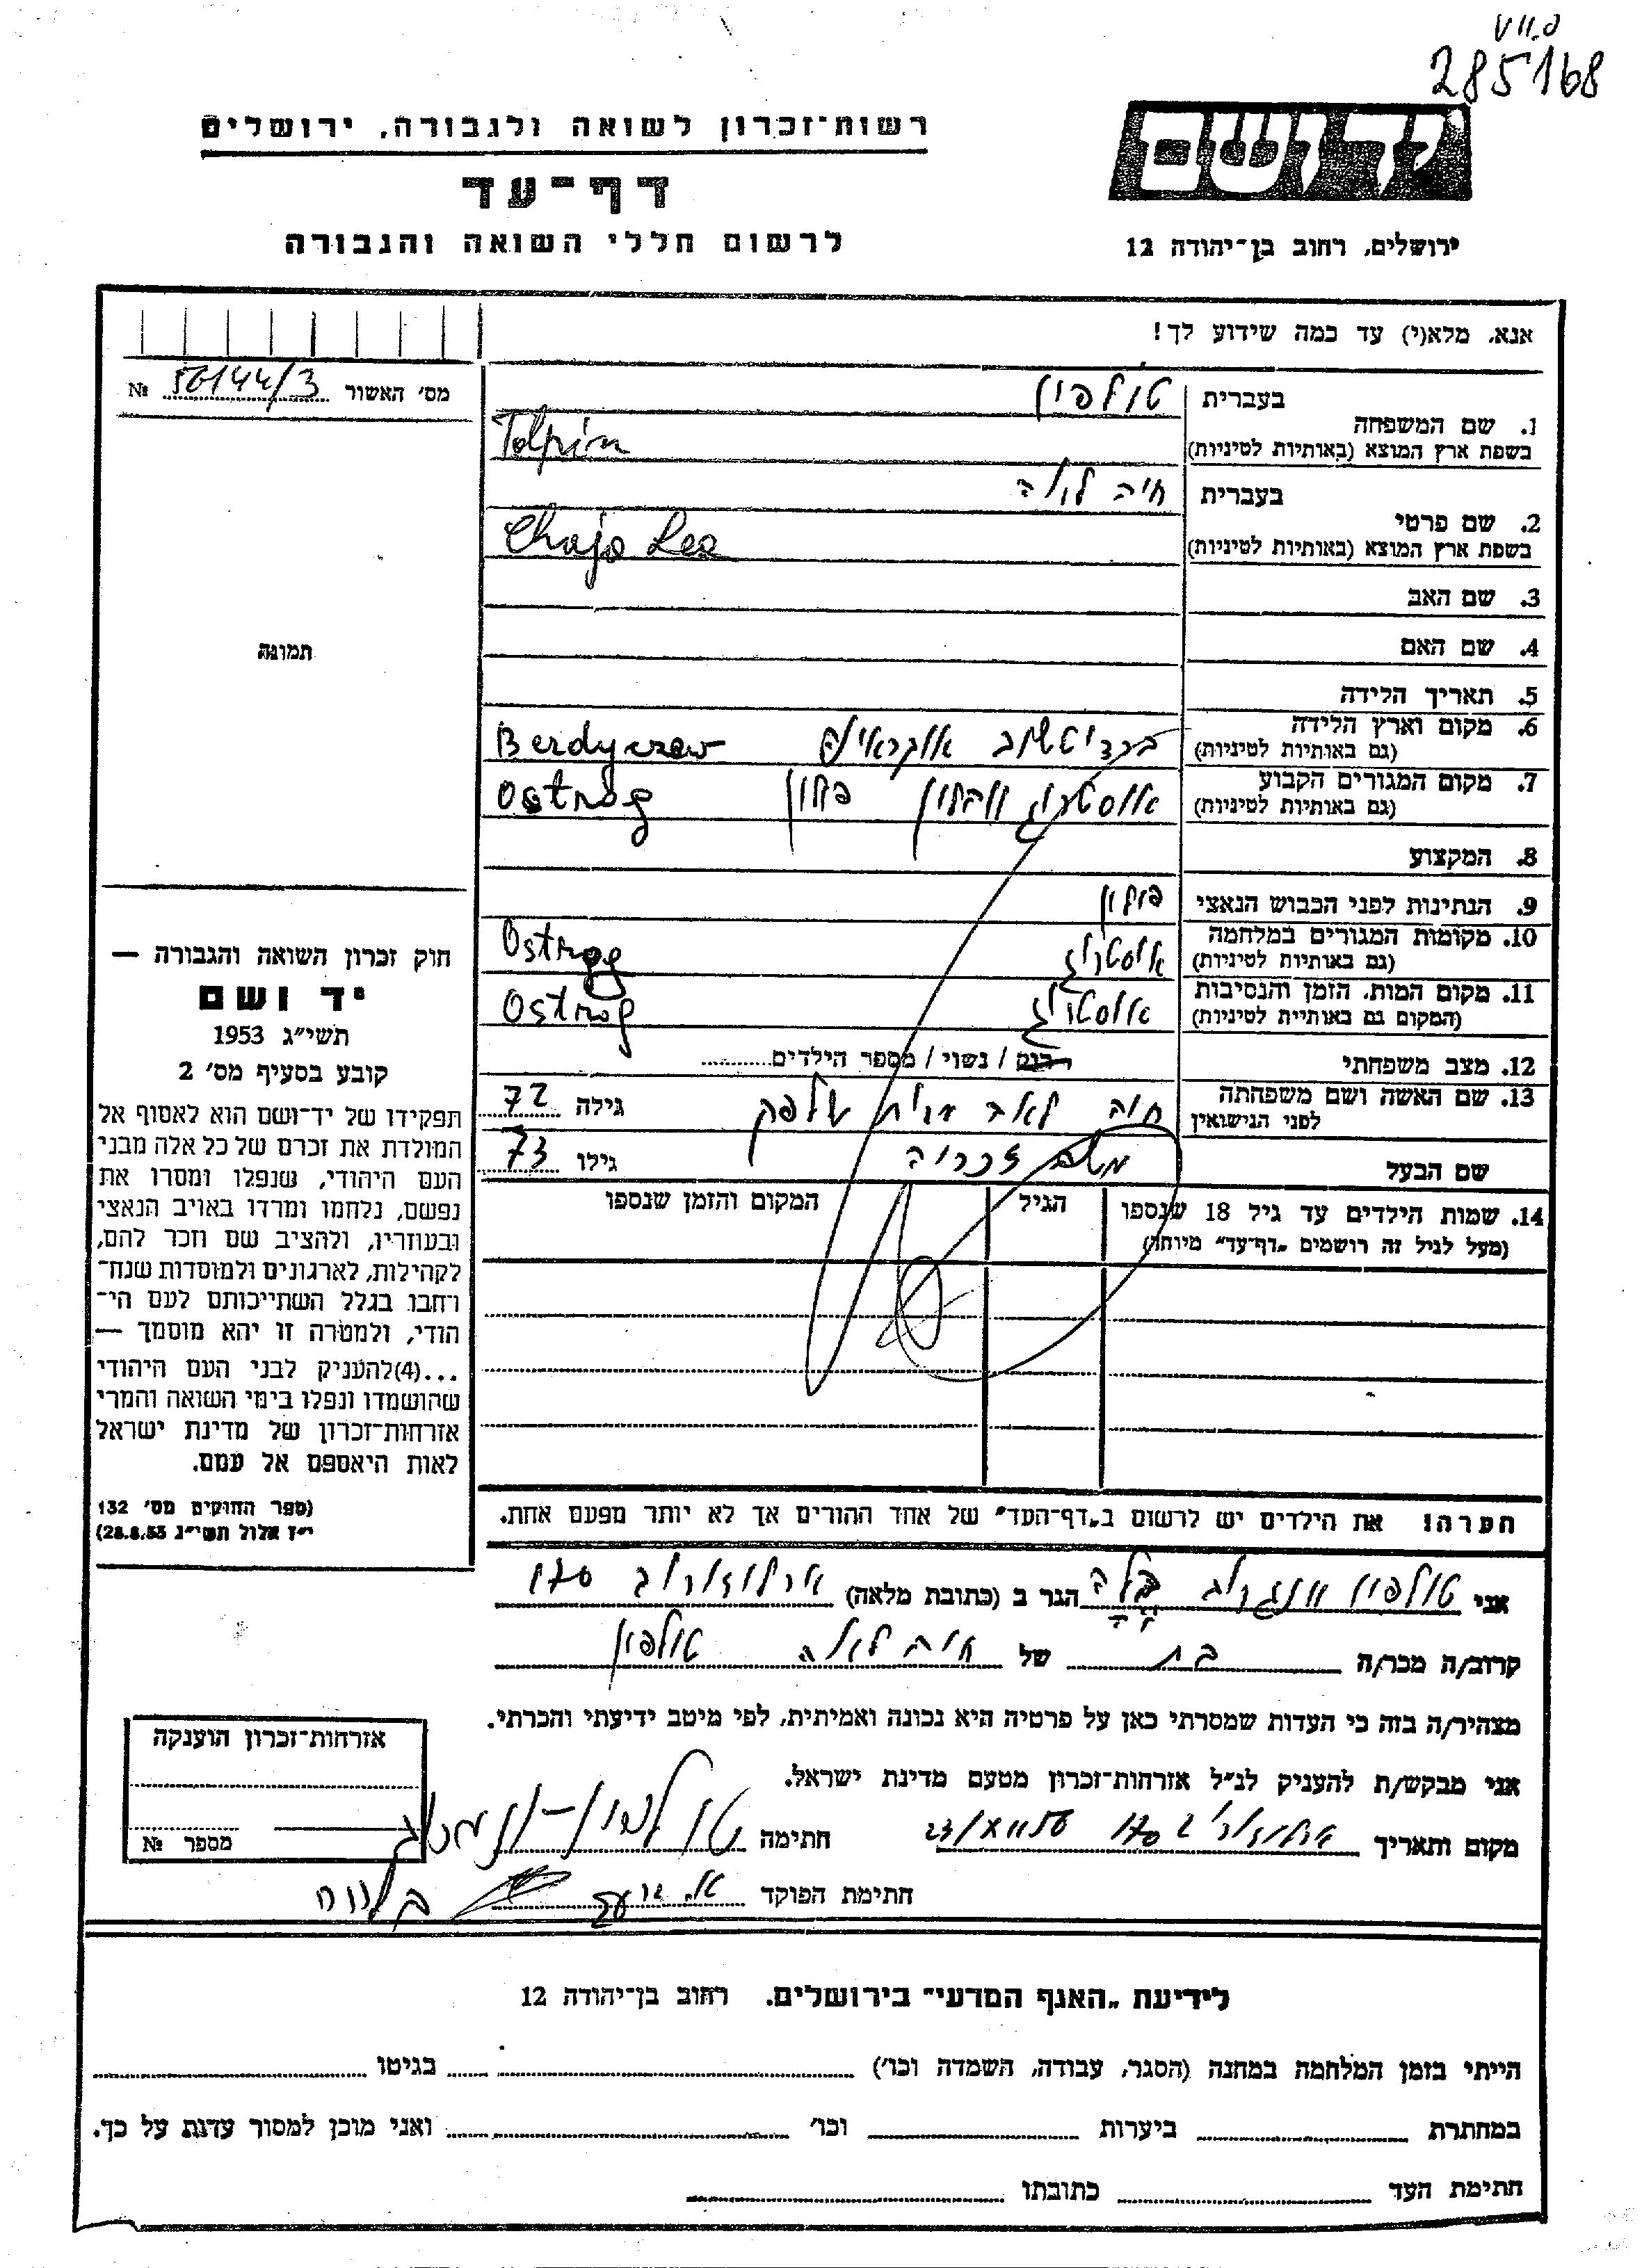 285168
רשות־זכרון לשואה ולגבורה, ירושלים
יד ושם
דף־עד
לרשום חללי השואה והגבורה
ירושלים, רחוב בן־יהודה 12
אנא, מלא(י) עד כמה שידוע לך!
מס' האשור 56144/3 №
1. שם המשפחה
בעברית טולפין
בשפת ארץ המוצא (באותיות לטיניות) Tolpin
2. שם פרטי
בעברית חיה לאה
בשפת ארץ המוצא (באותיות לטיניות) Chaja Lea
3. שם האב
4. שם האם
תמונה
5. תאריך הלידה
6. מקום וארץ הלידה (גם באותיות לטיניות) ברדיטשוב Berdyczew
7. מקום המגורים הקבוע (גם באותיות לטיניות) אוסטרוג ווהלין פולין Ostróg
8. המקצוע
9. הנתינות לפני הכבוש הנאצי פולין
10. מקומות המגורים במלחמה (גם באותיות לטיניות) אוסטרוג Ostrog
11. מקום המות, הזמן והנסיבות (המקום גם באותיות לטיניות) אוסטרוג Ostrog
12. מצב משפחתי רווק / נשוי / מספר הילדים
13. שם האשה ושם משפחתה לפני הנישואין חיה לאה גילה 72
שם הבעל זכריה גילו 73
14. שמות הילדים עד גיל 18 שנספו הגיל המקום והזמן שנספו
(מעל לגיל זה רושמים „דף־עד" מיוחד)
חוק זכרון השואה והגבורה —
יד ושם
תשי״ג 1953
קובע בסעיף מס' 2
תפקידו של יד־ושם הוא לאסוף אל
המולדת את זכרם של כל אלה מבני
העם היהודי, שנפלו ומסרו את
נפשם, נלחמו ומרדו באויב הנאצי
ובעוזריו, ולהציב שם וזכר להם,
לקהילות, לארגונים ולמוסדות שנח־
רבו בגלל השתייכותם לעם הי־
הודי, ולמטרה זו יהא מוסמך —
...(4)להעניק לבני העם היהודי
שהושמדו ונפלו בימי השואה והמרי
אזרחות־זכרון של מדינת ישראל
לאות היאספם אל עמם.
(ספר החוקים מס' 132
י״ז אלול תשי״ג 28.8.53)
הערה! את הילדים יש לרשום ב„דף־העד" של אחד ההורים אך לא יותר מפעם אחת.
אני טולפין בלה הגר ב (כתובת מלאה) ארלוזורוב 170
קרוב/ה מכר/ה בת של חיה לאה טולפין
מצהיר/ה בזה כי העדות שמסרתי כאן על פרטיה היא נכונה ואמיתית, לפי מיטב ידיעתי והכרתי.
אני מבקש/ת להעניק לנ״ל אזרחות־זכרון מטעם מדינת ישראל.
מקום ותאריך ארלוזורוב 170 חתימה
חתימת הפוקד
אזרחות־זכרון הוענקה
מספר №
לידיעת „האגף המדעי" בירושלים, רחוב בן־יהודה 12
הייתי בזמן המלחמה במחנה (הסגר, עבודה, השמדה וכו') בגיטו
במחתרת ביערות וכו' ואני מוכן למסור עדות על כך.
חתימת העד כתובתו